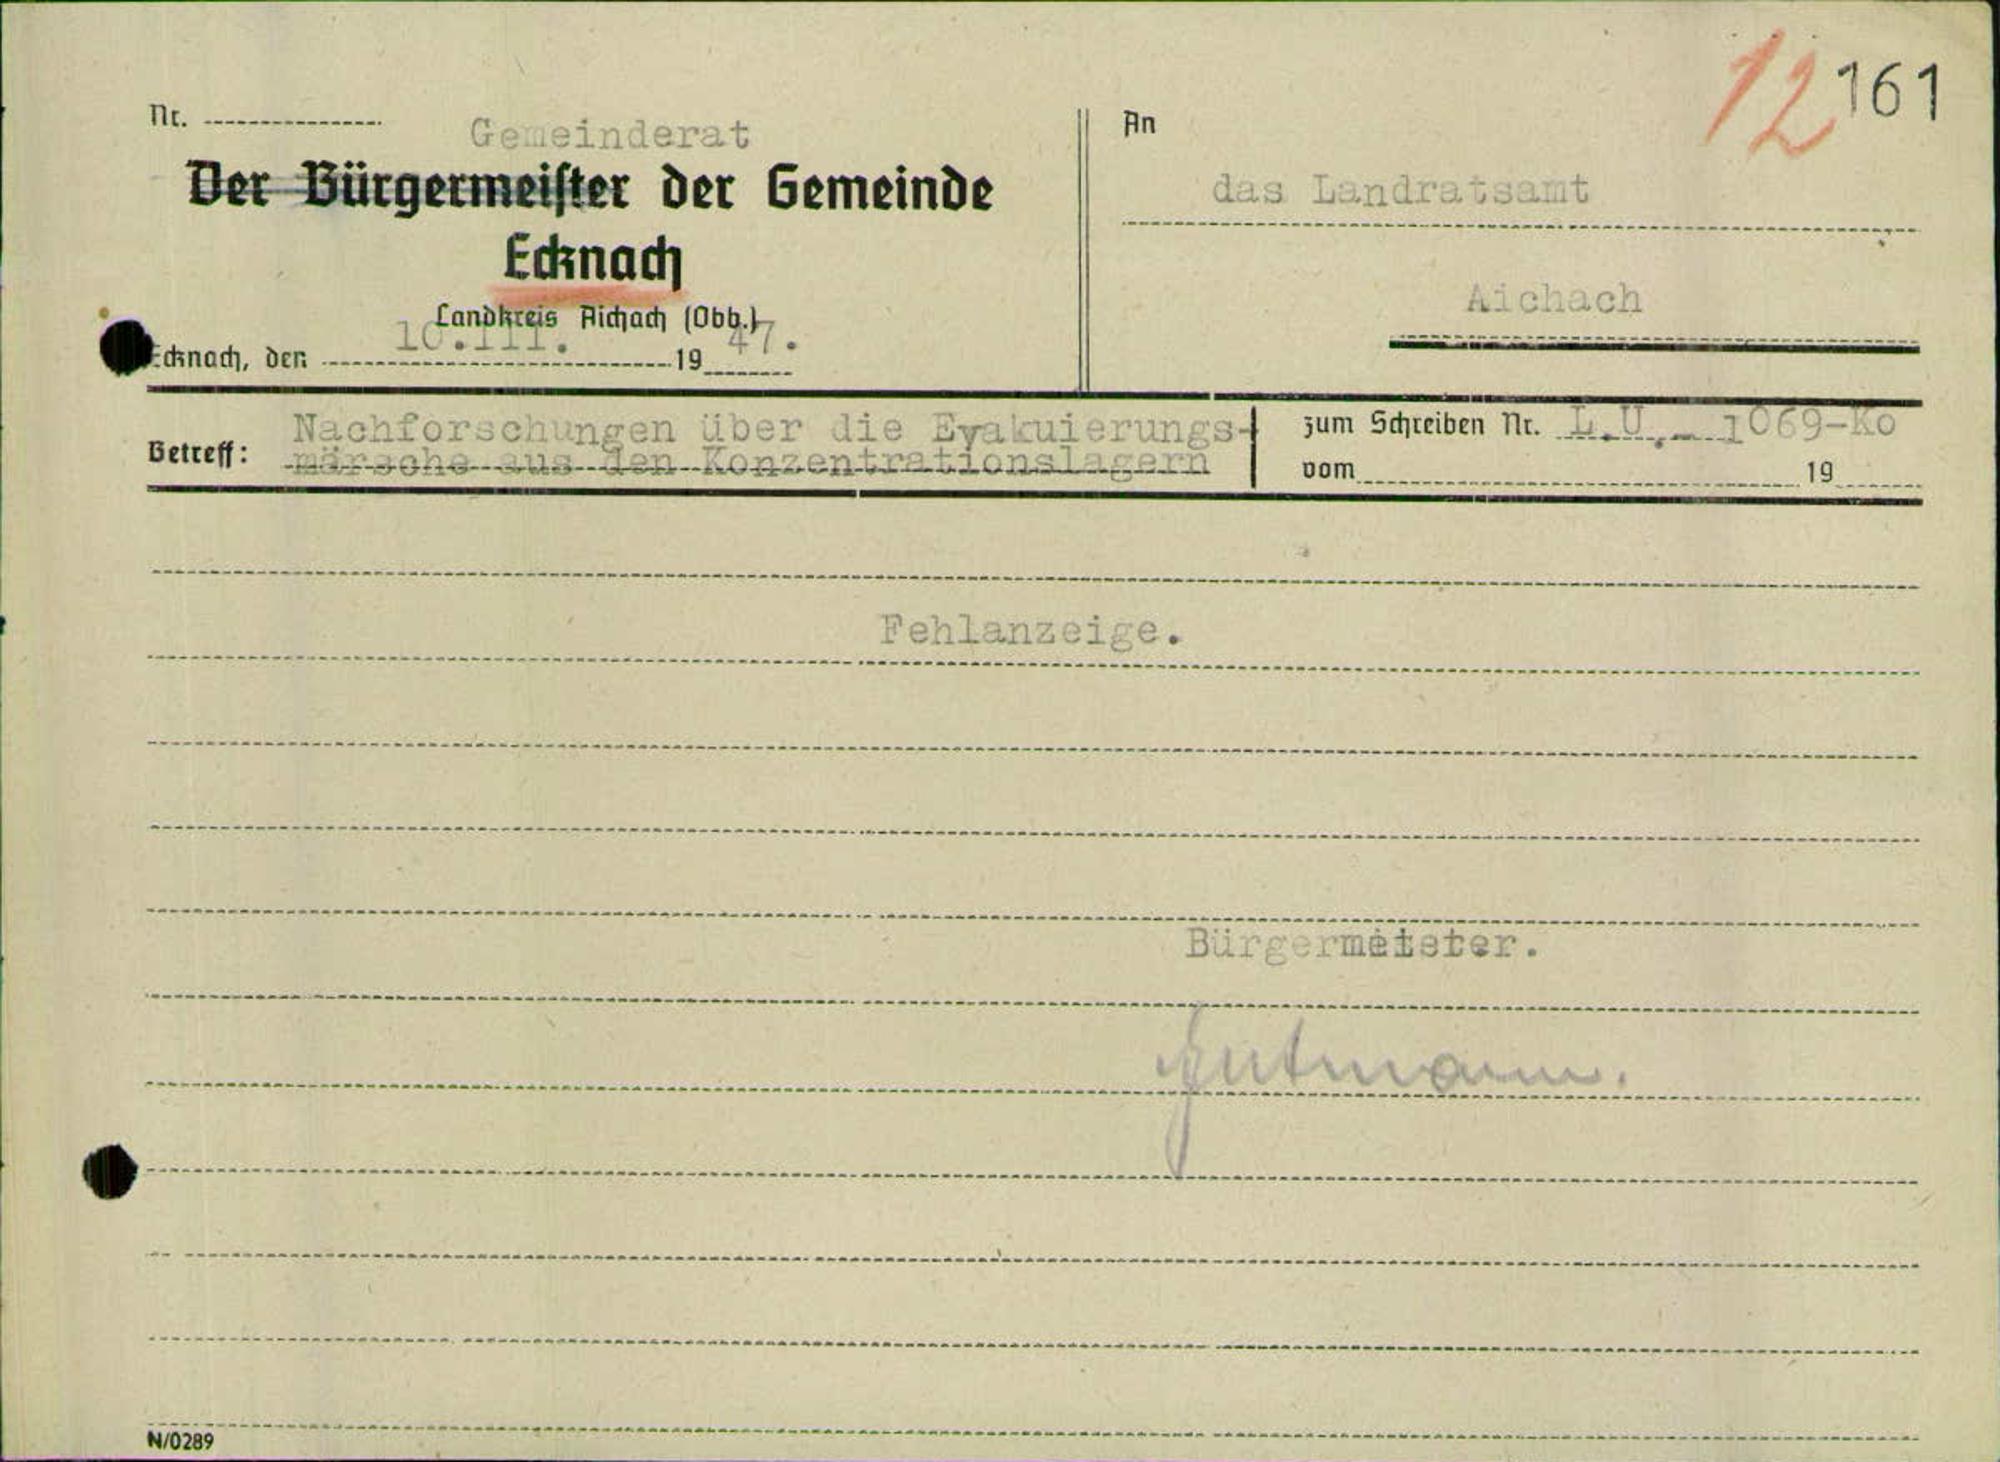 12 161
Nr.
Gemeinderat
Der Bürgermeister der Gemeinde
Ecknach
Landkreis Aichach (Obb.)
Ecknach, den 10.III. 1947.
An
das Landratsamt
Aichach
Betreff: Nachforschungen über die Evakuierungs-
märsche aus den Konzentrationslagern
zum Schreiben Nr. L.U.- 1069-Ko
vom 19
Fehlanzeige.
Bürgermeister.
Gutmann.
N/0289